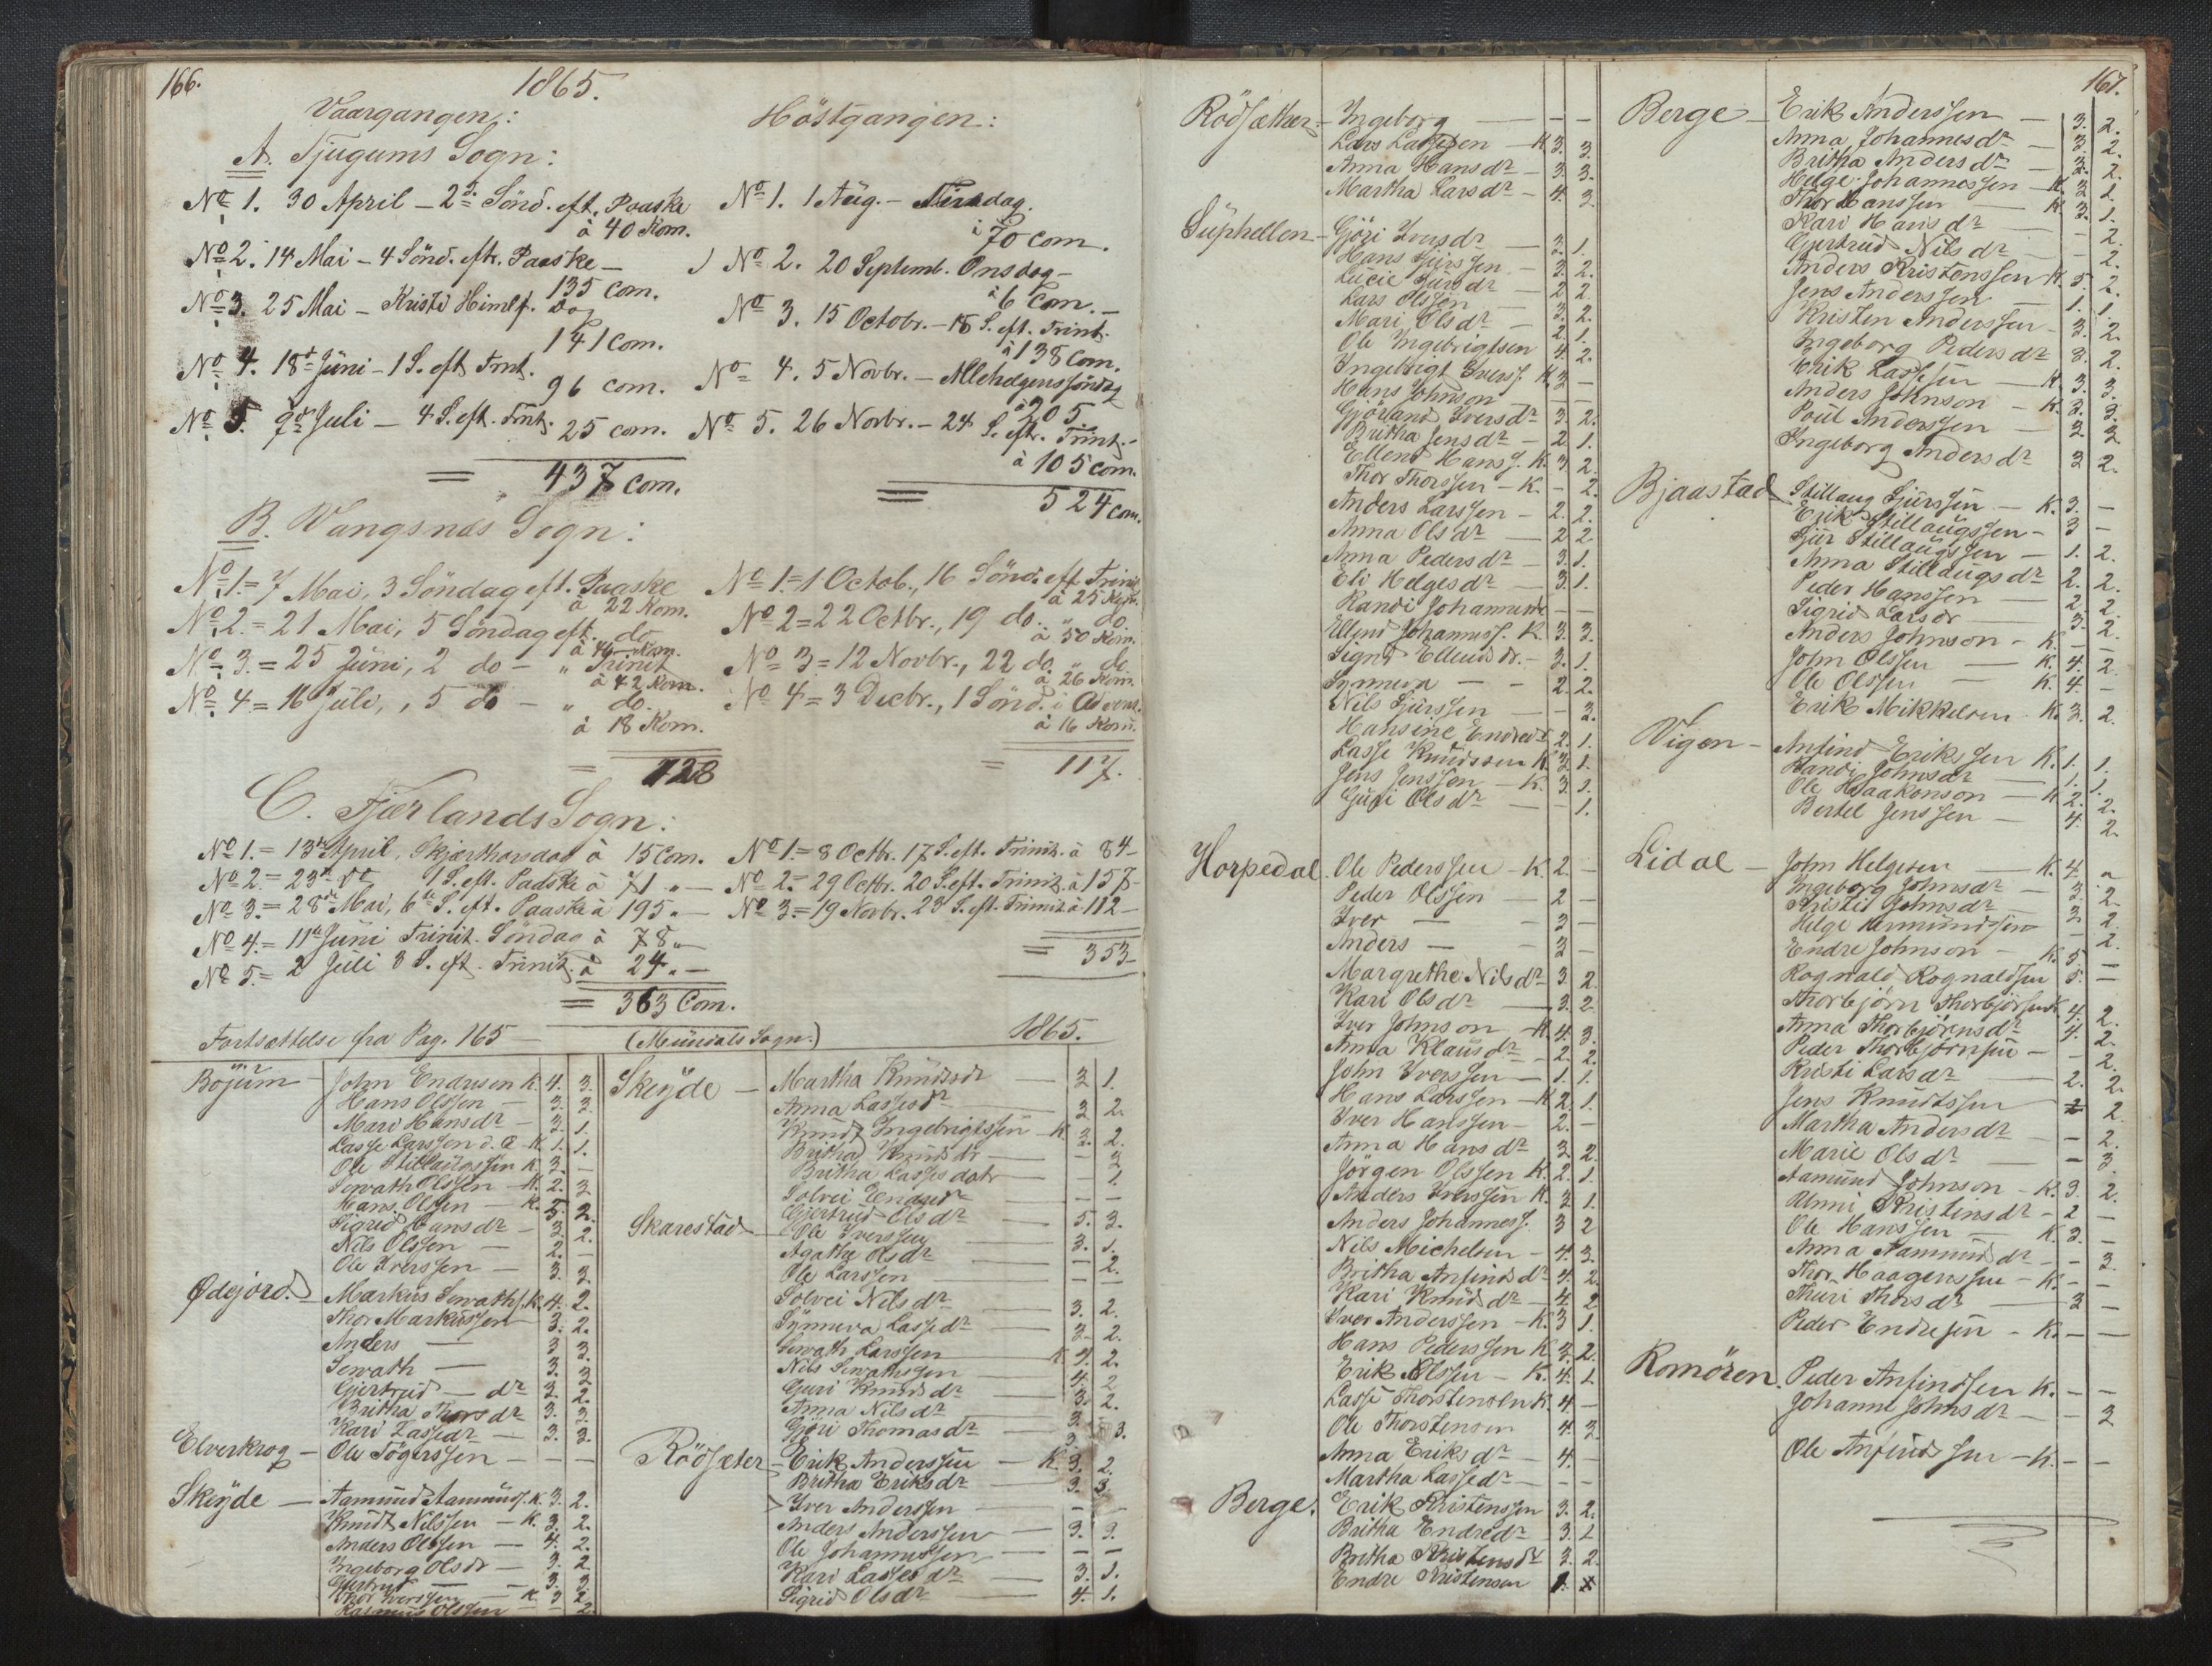 166.
1865.
Vaargangen:
A. Tjugums Sogn:
No 1. 30 April – 2d Sönd. eft. Paaske
à 40 Kom.
No 2. 14 Mai – 4 Sönd. eftr. Paaske –
135 Com.
No 3. 25 Mai – Kristi Himlf. Dag
141 Com.
No 4. 18de Juni – 1 S. eft Trnt.
96 com.
No 5. 9de Juli – 4 S. eft. Trnt.
25 com.
= 437 com.
Höstgangen:
No 1. 1 Aug. – Tirsdag.
à 70 com.
No 2. 20 Septemb. Onsdag –
à 6 Com. –
No 3. 15 Octobr. – 18 S. eft. Trint.
à 138 Com.
No 4. 5 Novbr. – Allehelgenssöndag
à 205
No 5. 26 Novbr. – 24 S. eftr. Trint. –
à 105 com.
= 524 com.
B. Wangsnæs Sogn:
No 1. = 7 Mai, 3 Söndag eft. Paaske
à 22 Kom.
No 2. = 21 Mai, 5 Söndag eft. do
à 46 Kom.
No 3. = 25 Juni, 2 do – " Trinit
à 42 Kom.
No 4. = 16 Juli, 5 do – " do.
à 18 Kom.
= 128
No 1. = 1 Octob., 16 Sönd. eft Trinit
à 25 Kom.
No 2 = 22 Octbr., 19 do. " do.
à 50 Kom.
No 3 = 12 Novbr., 22 do. " do.
à 26 Kom.
No 4 = 3 Decbr., 1 Sönd. i Advent.
à 16 Kom.
= 117.
C. Fjærlands Sogn:
No 1. = 13de April, Skjærthorsdag à 15 Com.
No 2. = 23de do 1 S. eft. Paaske à 71 " –
No 3. = 28de Mai, 6te S. eft. Paaske à 195 " –
No 4. = 11te Juni Trinit. Söndag à 78 " –
No 5. = 2 Juli 3 S. eft. Trinit. à 24 " –
= 363 Com.
No 1. = 8 Octbr. 17 S. eft. Trinit. à 84 –
No 2. = 29 Octbr. 20 S. eft. Trinit. à 157 –
No 3. = 19 Novbr. 23 S. eft. Trinit à 112 –
= 353 –
Fortsættelse fra Pag. 165 (Mundals Sogn.) 1865.
Böjum – John Endresen K. 4. 3.
Hans Olssen – 3. 3.
Mari Hansdr – 3. 1.
Lasse Larssen d. Æ – K. 1. 1.
Ole Stillaugssen K. 3. –
Sewath Olssen – K. 2. 3
Hans Olssen – K. 5. 2.
Sigrid Hansdr – 3. 2.
Nils Olssen – 2. –
Ole Iverssen – 3. 3.
Ødejord. – Markus Sewaths. K. 4. 2.
Thor Markussen 3. 2.
Anders – 3 3.
Sewath – 3. 3
Gjertrud – dr 3. 2.
Britha Thorsdr – 3. 3.
Kari Lassedr – 3. 3.
Elverkrog – Ole Tögerssen – – –
Skeide – Aamund Aamunds. K. 3. 2.
Knudt Nilssen – K. 3. 2.
Anders Olssen – 4. 2.
Ingeborg Olsdr – 3. 2
Gjertrud – – 3. 3.
Thor Iverssen – K. 3 2.
Rasmus Olssen – – 2.
Skeyde – Martha Knudsdr – 3 1.
Anna Lassesdr – 3 2.
Knudt Ingebrigtssen – K. 3. 2.
Britha Knudsdr – – 3
Britha Lasses datr – – 1.
Solvei Endresdr – – –
Gjertrud Olsdr – 5. 3.
Skarestad – Ole Iverssen – 3. 1.
Agathe Olsdr – – 2.
Ole Larssen – – –
Solvei Nilsdr – 3. 2.
Synneva Lassedr – 3 2.
Sewath Larssen – K. 4. 2.
Nils Sewathssen 4. 2
Guri Knudsdr – 3. 2.
Anna Nilsdr – 3. –
Gjöri Thomasdr – 3 3.
Rödsæter – Erik Anderssen – K. 3. 2.
Britha Eriksdr – 3. 3.
Iver Anderssen – – –
Anders Anderssen – 3. 3.
Ole Johannessen – – –
Kari Lassesdr – 3. 1.
Sigrid Olsdr – 4. 1.
167.
Rödsæther – Ingeborg – – –
Lars Lassesen – K 3. 3.
Anna Hansdr – 3. 3.
Martha Larsdr – 4. 3.
Suphellen – Gjöri Iversdr – 3. 1.
Hans Sjurssen – 3. 2.
Lucie Sjursdr – 2 2.
Lars Olssen – 3. 2.
Mari Olsdr – 2. 1.
Ole Ingebrigtsen 4. 2.
Ingebrigt Iverss. K. 3 –
Hans Johnson – –
Gjörland Iversdr – 3. 2.
Britha Jensdr – 2. 1.
Ellend Hanss. K. 3. 2.
Thor Thorssen – K. – 2.
Anders Larssen – 2. 2.
Anna Olsdr – 2 2.
Anna Pedersdr – 3. 1.
Eli Helgesdr – 3. 1.
Randi Johannesdr – –
Ellend Johanness. K. 3. 3.
Signe Ellendsdr. – 3. 1.
Synneva – – 2. 2.
Nils Sjurssen – – 3.
Hansine Endredr 2. 1.
Lasse Knudssen K. 3. 1.
Jens Jenssen – K. 3. 1.
Guri Olsdr – – 1.
Horpedal. Ole Pederssen – K. 2. –
Peder Olssen – 2 –
Iver – – 3 –
Anders – – 3 –
Margrethe Nilsdr – 3. 2.
Kari Olsdr – 3. 2
Iver Johnson – K. 4. 3.
Anna Klausdr – 2. 2.
John Iverssen – 1. 1.
Hans Larssen – K 2. 1.
Iver Hanssen – 2. –
Anna Hansdr 3. 2.
Jörgen Olssen K. 2. 1.
Anders Iverssen K. 3. 1.
Anders Johanness. 3 2
Nils Michelsen – 4. 3.
Britha Anfindsdr 4. 2.
Kari Knudsdr – 4. 2
Iver Anderssen – K. 3 1.
Hans Pederssen K 4. 2.
Erik Olssen – K. 4. 1.
Lasse Thorstensen K. 4 –
Ole Thorstensen 4. 3.
Anna Eriksdr – 4. –
Martha Lassedr – – –
Berge. Erik Kristenssen 3. 2.
Britha Endredr – 3. 1
Britha Kristensdr 3. 2.
Endre Kristenson
Berge – Erik Anderssen – 3. 2.
Anna Johannesdr – 3. 2.
Britha Andersdr – 3. 2.
Helge Johannessen – K. 3. 1.
Thor Hanssen – K. 3. 1.
Kari Hansdr – – 2.
Gjertrud Nilsdr – – 2.
Anders Kristenssen K. 5. 2.
Jens Anderssen – 1. 1.
Kristen Anderssen – 3. 2.
Ingeborg Pedersdr 3. 2.
Erik Lassesen – K. 3. 3.
Anders Johnson – K. 3. 3.
Poul Anderssen – 3 3
Ingeborg Andersdr 3 2.
Bjaastad – Stillaug Sjurssen – K. 3. –
Erik Stillaugssen – 3 –
Sjur Stillaugssen – 1. 2.
Anna Stillaugsdr 2. 2.
Peder Hanssen – 2. 2.
Sigrid Larsdr – 3. 2.
Anders Johnson – K. – –
John Olssen – K. 4. 2.
Ole Olssen – K. 4. –
Erik Mikkelsen – K. 3. 2.
Vigen – Anfind Erikssen K. 1. 1.
Randi Johnsdr – 1. 1.
Ole Haakonson – K 2. 2.
Bertel Jenssen – 4. 2.
Lidal – John Helgesen – K. 4. –
Ingeborg Johnsdr – 3. 2.
Kristi Johnsdr – 3. 2.
Helge Hermundsen – 2.
Endre Johnson – K. 5. –
Rognald Rognaldsen 5. –
Thorbjörn Thorbjörsen K 4. 2.
Anna Thorbjörnsdr 4. 2.
Peder Thorbjörnsen – – 2.
Kristi Larsdr – 2. 2.
Jens Knudtssen 2 2
Martha Andersdr – – 2.
Marie Olsdr – – 3.
Aamund Johnson – K. 3. 2.
Unni Kristensdr – 2 –
Ole Hanssen – K 3. –
Anna Aamundsdr – – 3.
Thor Haagenssen – K. – –
Thuri Thorsdr – 3 –
Peder Endresen – K. – –
Romören. Peder Anfindssen K. – –
Johanne Johnsdr – – 3
Ole Anfindssen – K. – –